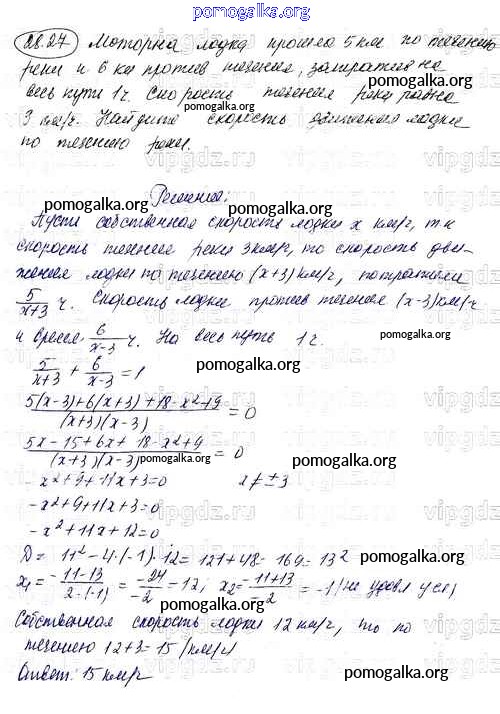 pomogalka.org
28.27 Моторна лодка прошла 5 км по течению
реки и 6 км против течения, затратив на
весь путь 1 ч. Скорость течения реки равна
3 км/ч. Найдите скорость движения лодки
по течению реки.
Решение:
Пусть собственная скорость лодки x км/ч, т.к
скорость течения реки 3 км/ч, то скорость дви-
жения лодки по течению (x+3) км/ч, потратили
5/(x+3) ч. Скорость лодки против течения (x-3) км/ч
и время 6/(x-3) ч. На весь путь 1 ч.
5/(x+3) + 6/(x-3) = 1
(5(x-3)+6(x+3)+18-x²+9)/((x+3)(x-3)) = 0
(5x-15+6x+18-x²+9)/((x+3)(x-3)) = 0
-x²+9+11x+3=0 x≠±3
-x²+9+11x+3=0
-x²+11x+12=0
D= 11²-4·(-1)·12=121+48=169=13²
x₁=(-11-13)/(2·(-1)) = -24/-2 = 12, x₂=(-11+13)/-2 = -1 (не удовл усл)
Собственная скорость лодки 12 км/ч, то по
течению 12+3=15 (км/ч)
Ответ: 15 км/ч
pomogalka.org
vipgdz.ru